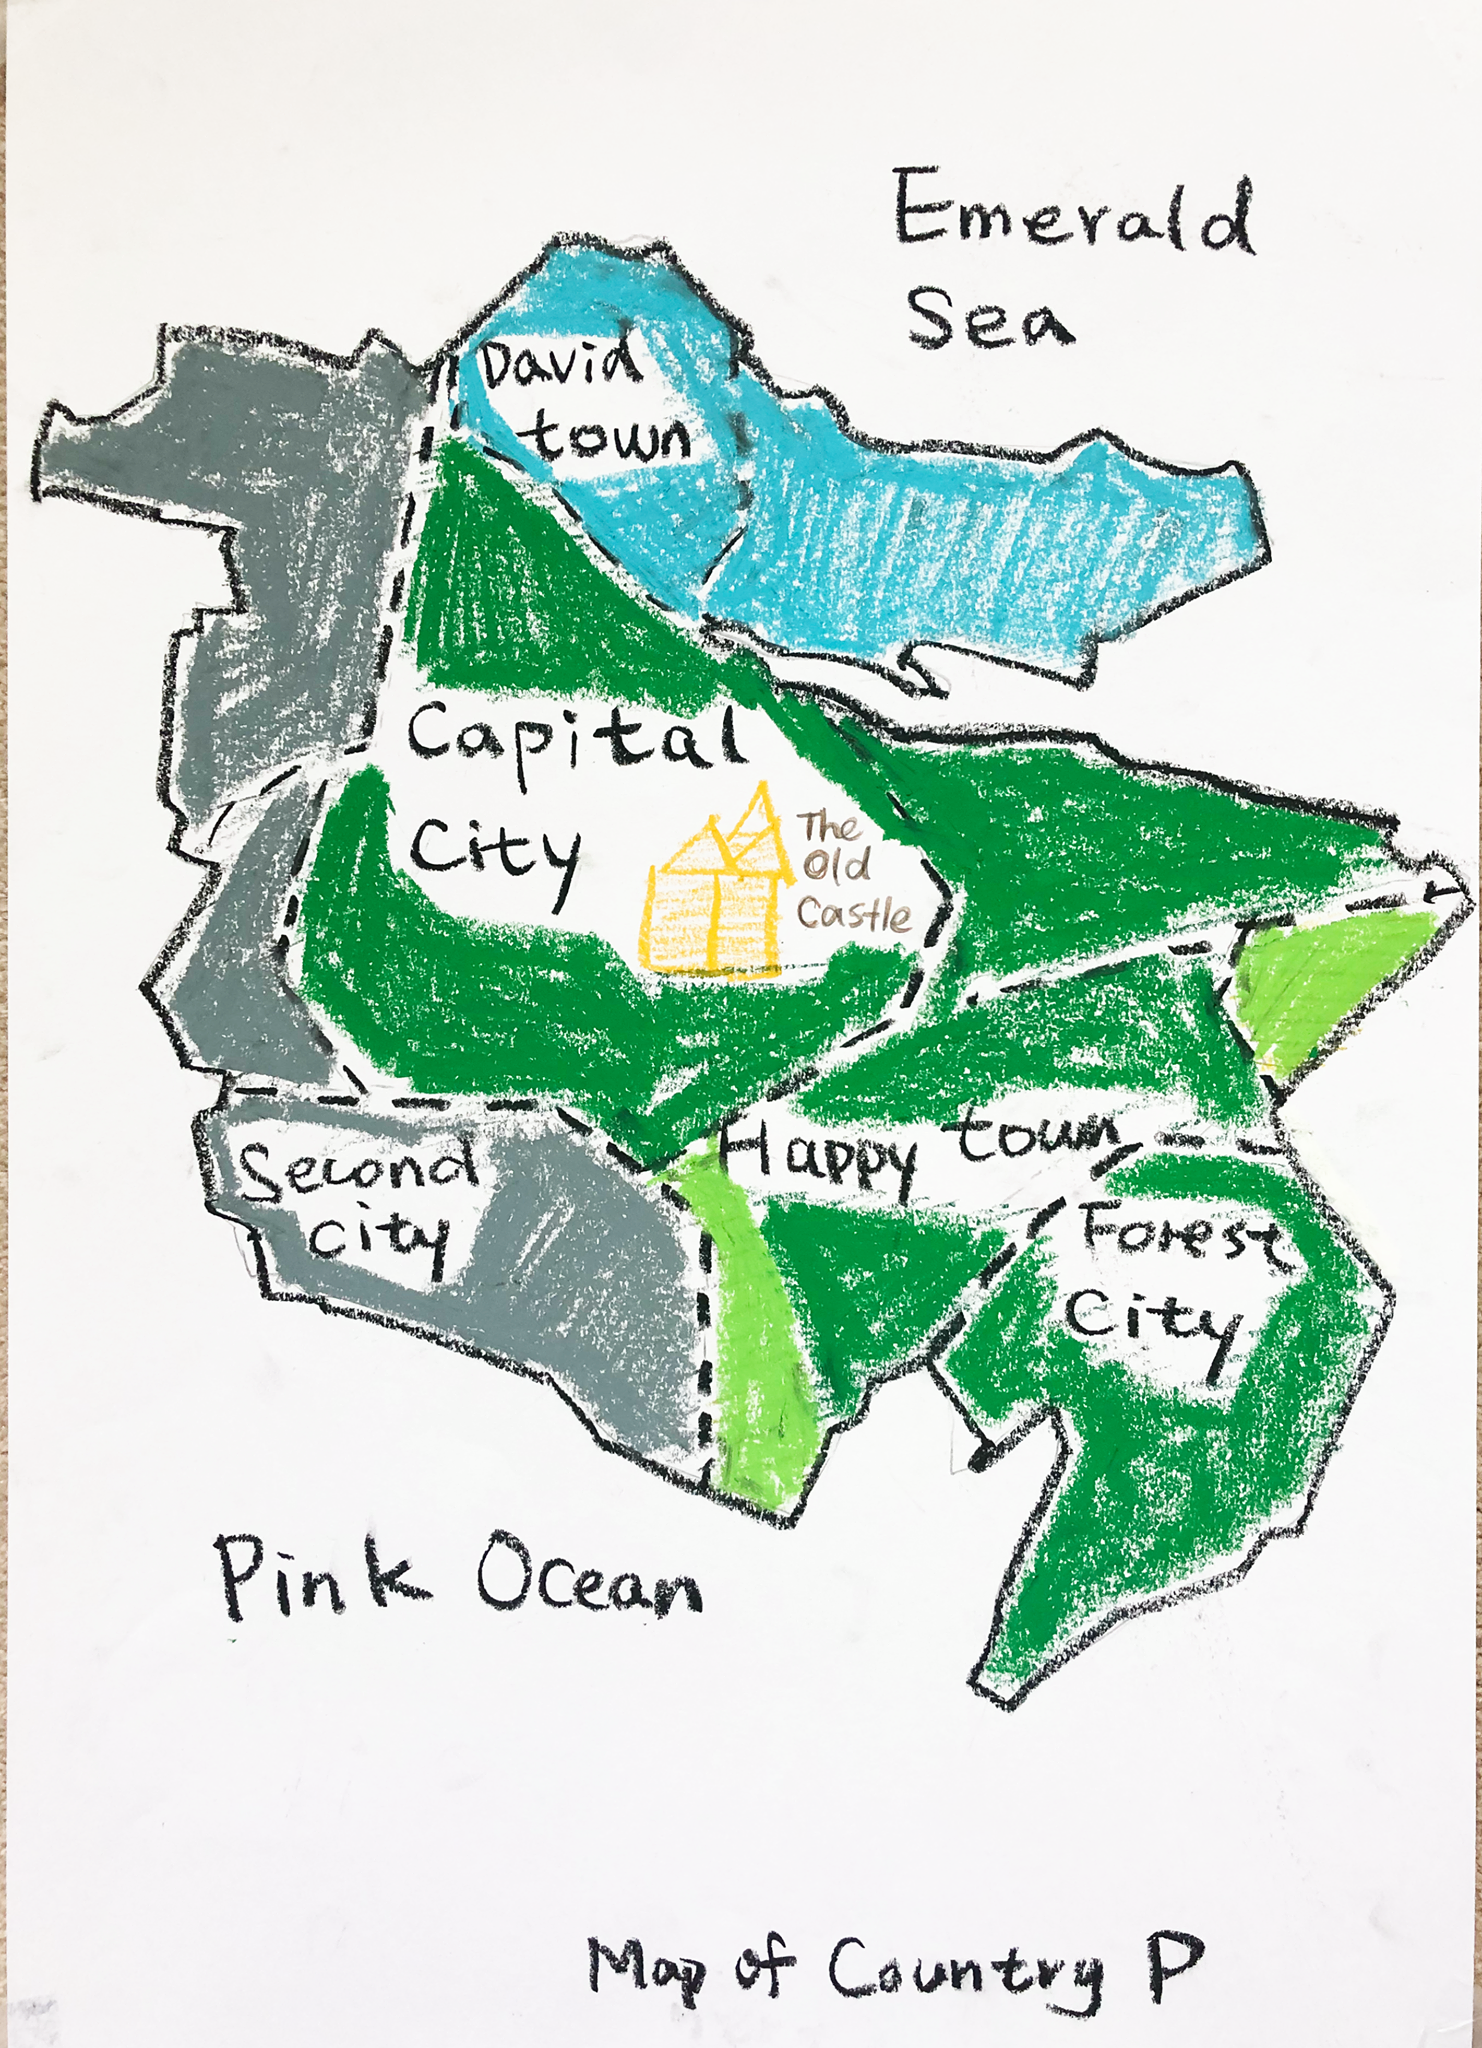 Emerald
Sea
David
town
Capital
City
The
Old
Castle
Happy town
Second
city
Forest
City
Pink Ocean
Map of Country P